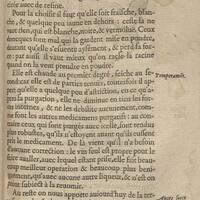 trée auec de resine.
Pour la choisir il faut qu'elle soit fraische, blan-
che, & quelque peu iaune en dehors : celle là ne
vaut rien, qui est blanche, noire, & vermoluë. Ceux
doncques font mal qui la gardent mise en poudre,
autant qu'elle s'esuente aysément, & perd sa for-
ce : par ainsi il vaut mieux qu'on racle la racine
quand on la veut prendre en poudre.
Elle est chaude au premier degré, seiche au se-
cond : car elle est de parties tenuës, toutefois d'au-
tant qu'elle a quelque peu d'astriction, en ce qu'a-
pres la purgation, elle ne
internes, & ne les debilite aucunement, com-
me font les autres medicamens purgatif : au con-
traire ceux qui sont purgés auec icelle, sont rendus
plus robustes, qu'ils n'estoyent auant qu'ils eussent
pris le medicament. De là vient qu'il n'a besoin
d'aucune correction : le vin seul est propre pour le
faire aualler, auec lequel estant prise, elle fait beau-
coup meilleure operation & beaucoup plus beni-
gnement, qu'auec aucune autre liqueur, & n'est on
point subiect à la reuomir.
Au reste on nous apporte auiourd'huy de la ter-
Temperamēt.
Autre sorte